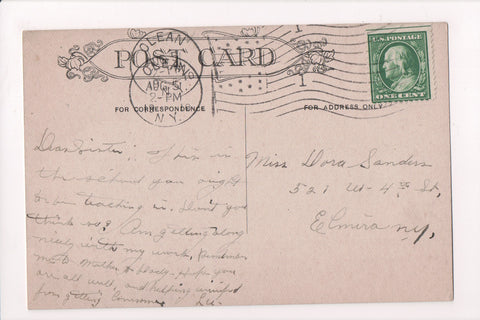 OLEAN
AUG 31
2-PM
N.Y.
POST CARD
U.S. POSTAGE
ONE CENT
1
1
FOR CORRESPONDENCE
FOR ADDRESS ONLY
Dear Sister; This is
the school you ought
to be teaching in. Don't you
think so? Am getting along
nicely with my work. Remember
me to Mother & Dady. Hope you
are all well, and helping
from getting lonesome. Lu-
Miss Dora Sanders
521 W- 4th St,
Elmira NY,